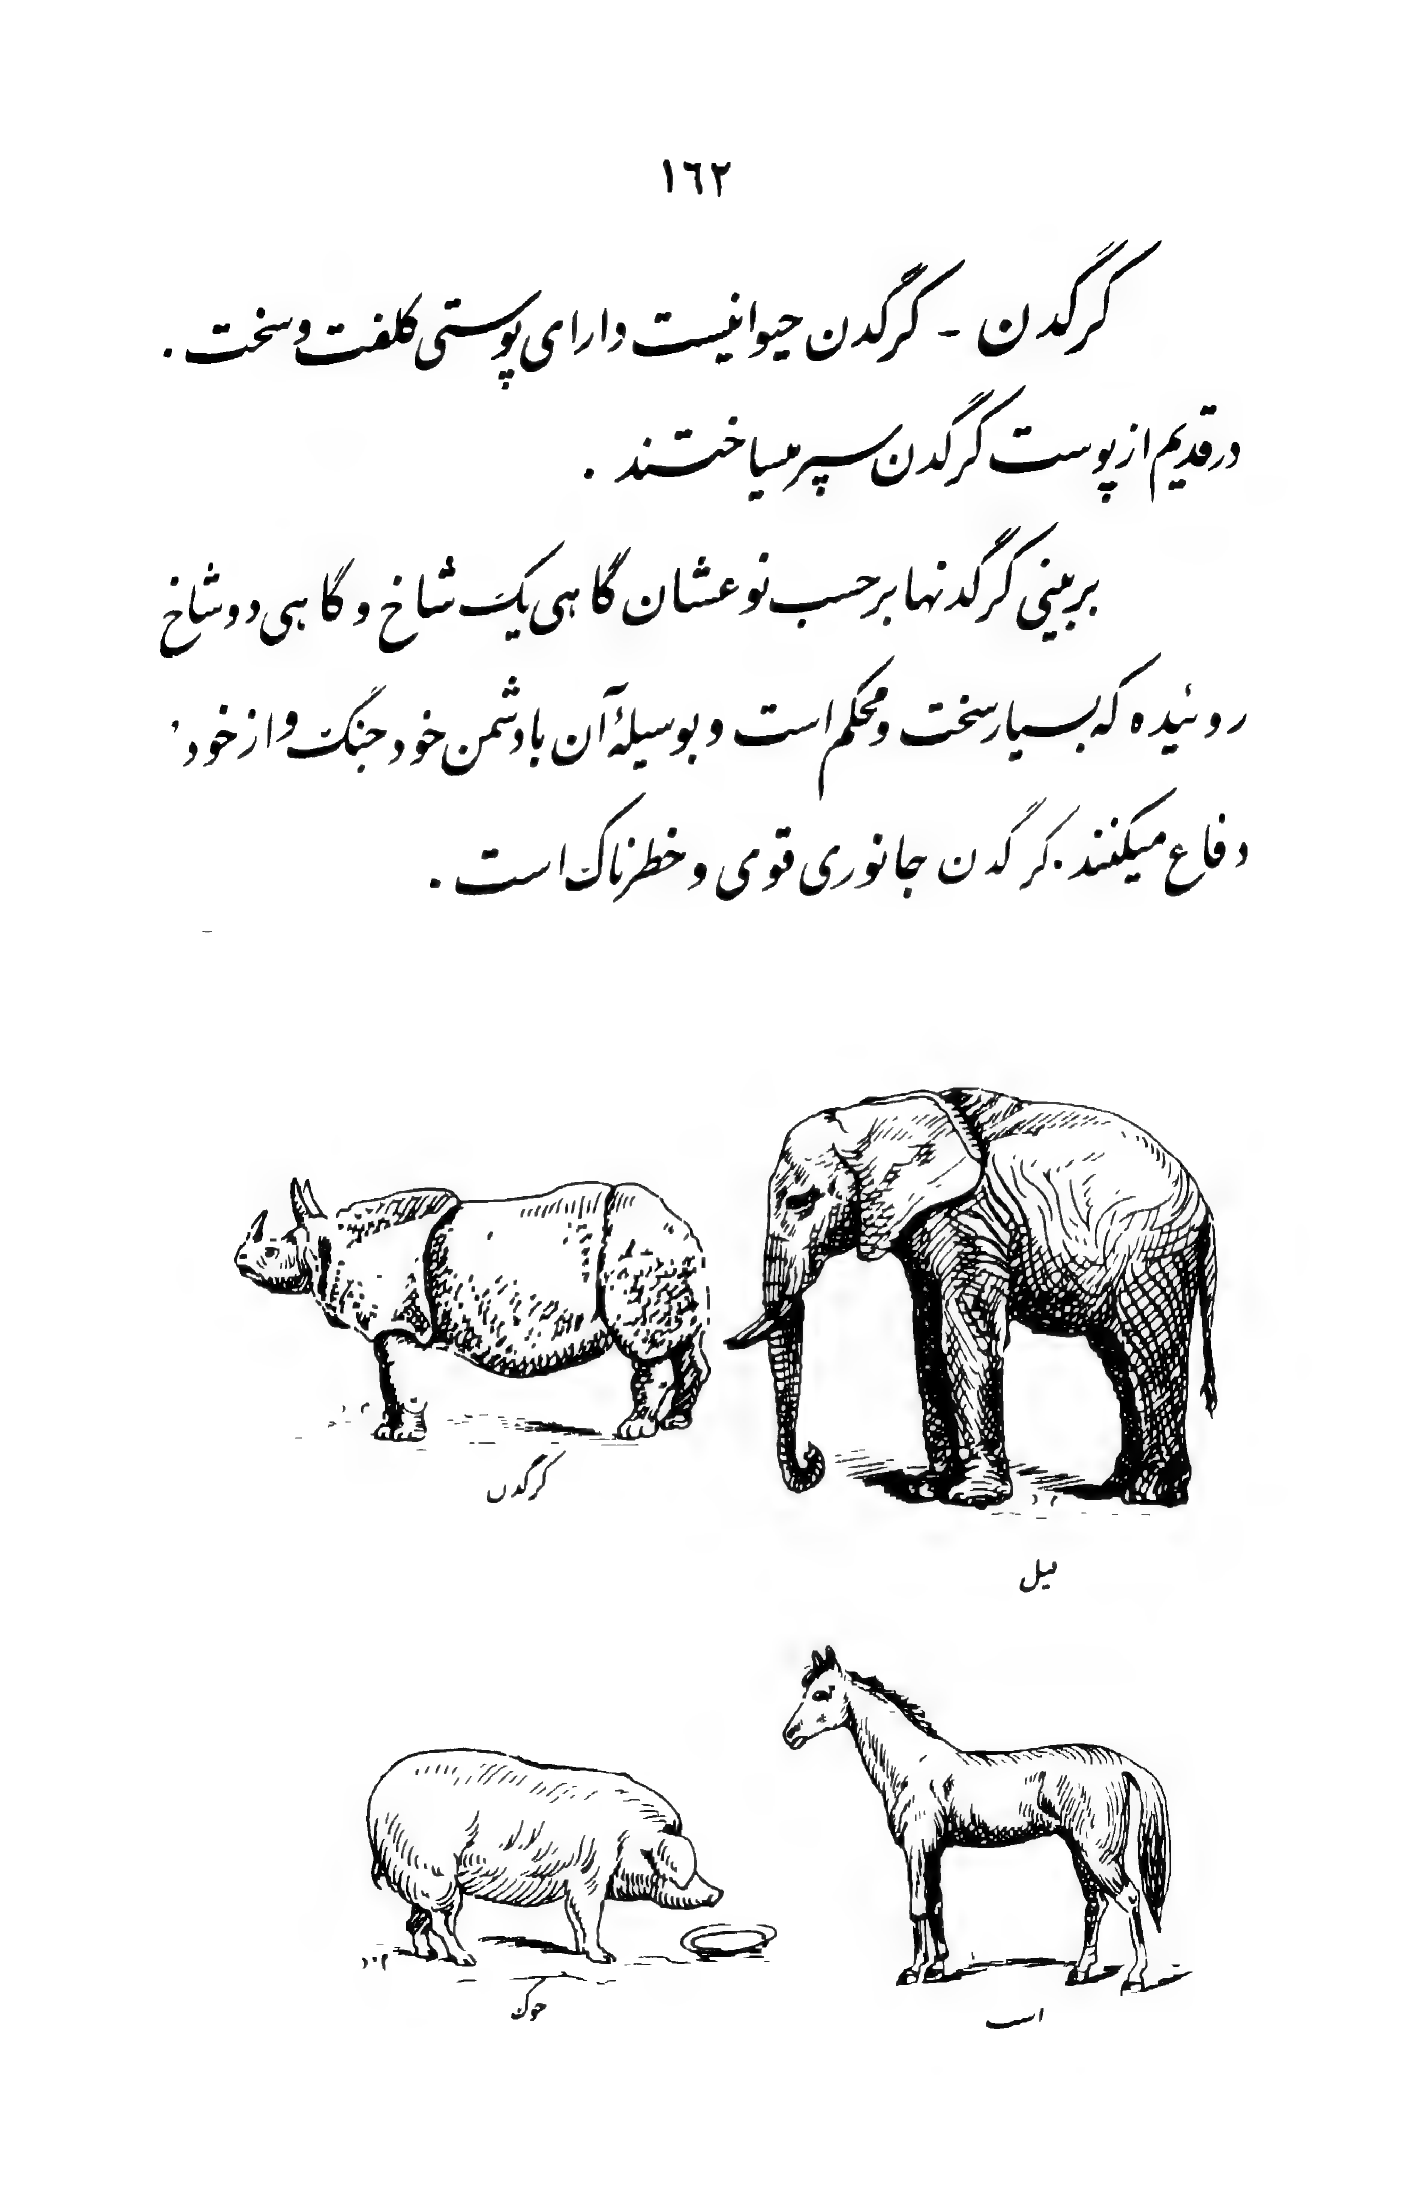 ١٦٢
کرگدن - کرگدن حیوانیست دارای پوستی کلفت و سخت .
در قدیم از پوست کرگدن سپر میساختند .
بر بینی کرگدنها بر حسب نوعشان گاهی یک شاخ و گاهی دو شاخ
روئیده که بسیار سخت و محکم است و بوسیلهٔ آن با دشمن خود جنگ و از خود
دفاع میکنند . کرگدن جانوری قوی و خطرناک است .
کرگدن
فیل
خوک
اسب